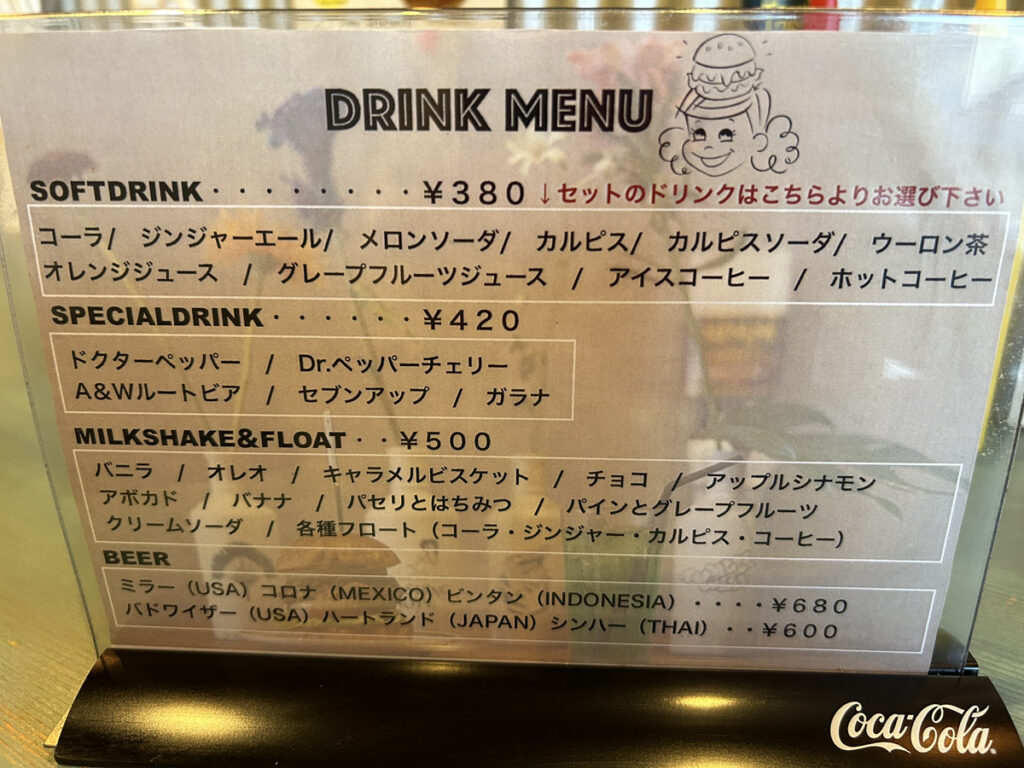 DRINK MENU
SOFTDRINK・・・・・・・・・¥380 ↓セットのドリンクはこちらよりお選び下さい
コーラ/ ジンジャーエール/ メロンソーダ/ カルピス/ カルピスソーダ/ ウーロン茶
オレンジジュース / グレープフルーツジュース / アイスコーヒー / ホットコーヒー
SPECIALDRINK・・・・・・¥420
ドクターペッパー / Dr.ペッパーチェリー
A&Wルートビア / セブンアップ / ガラナ
MILKSHAKE&FLOAT・・¥500
バニラ / オレオ / キャラメルビスケット / チョコ / アップルシナモン
アボカド / バナナ / パセリとはちみつ / パインとグレープフルーツ
クリームソーダ / 各種フロート（コーラ・ジンジャー・カルピス・コーヒー）
BEER
ミラー（USA）コロナ（MEXICO）ビンタン（INDONESIA）・・・・¥680
バドワイザー（USA）ハートランド（JAPAN）シンハー（THAI）・・¥600
Coca-Cola